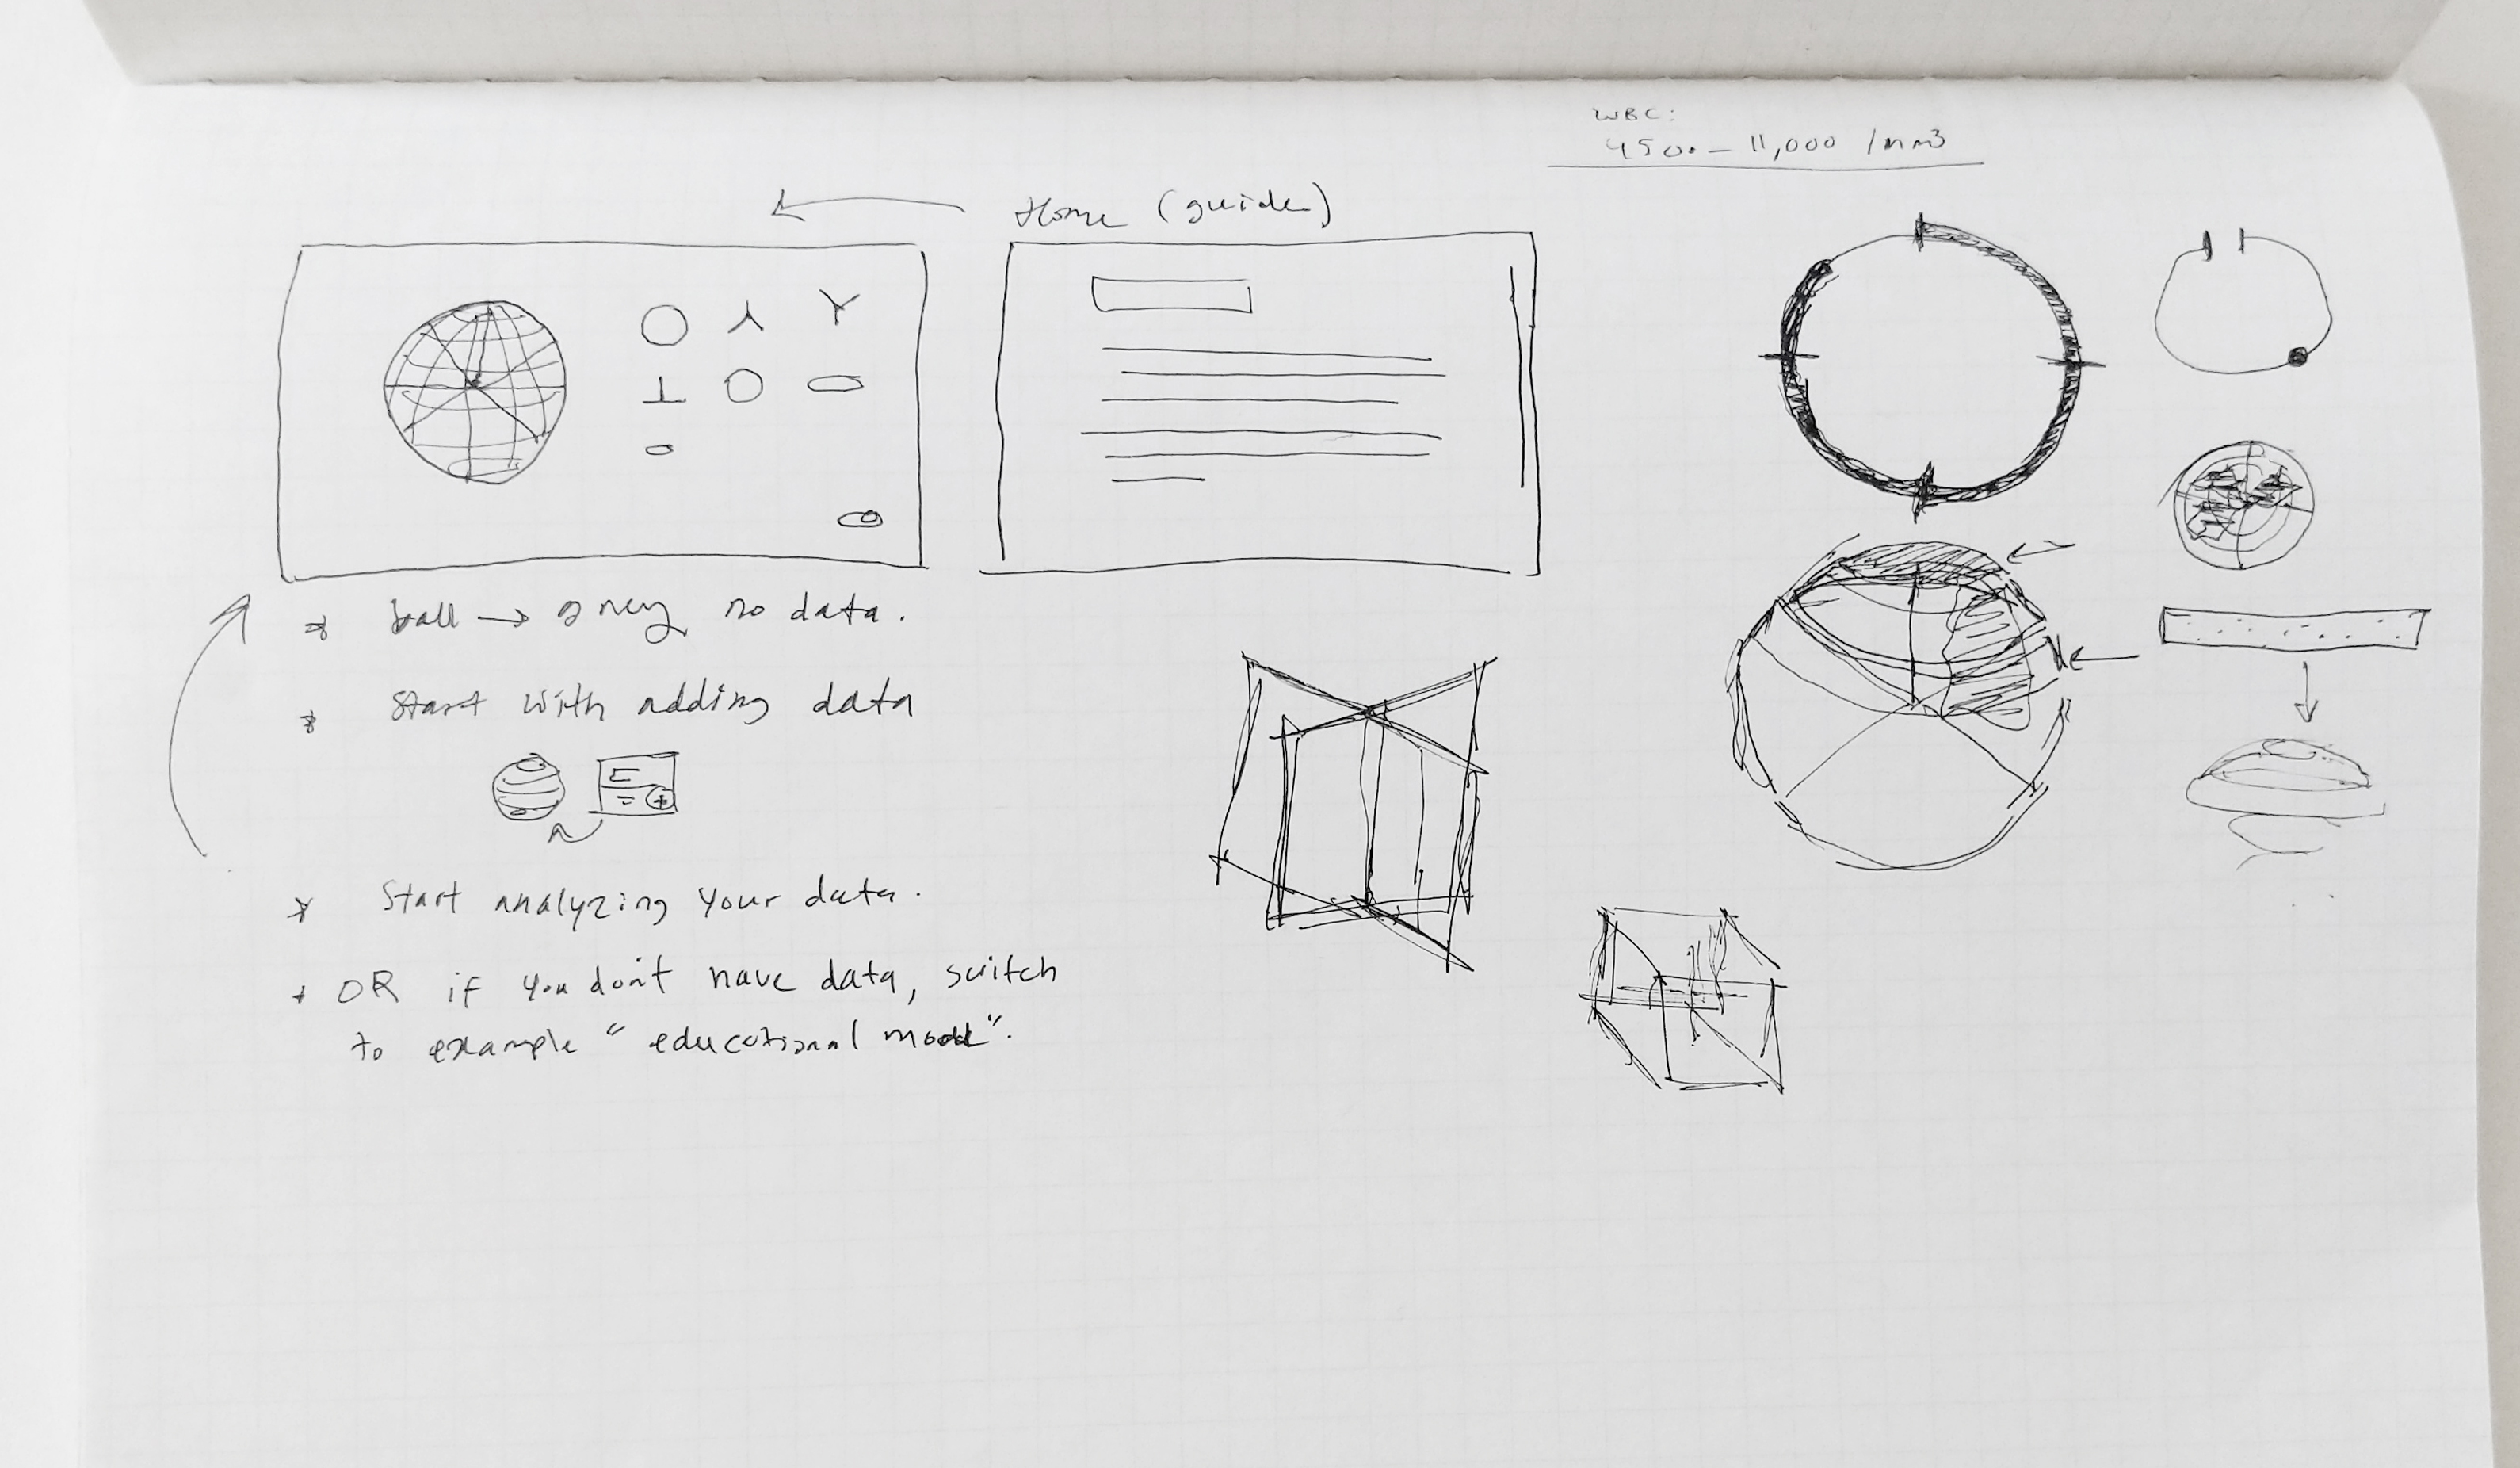 WBC:
4500 – 11,000 /mm3
Home (guide)
* ball → grey no data.
* Start with adding data
* Start analyzing your data.
* OR if you don't have data, switch
to example "educational mode".